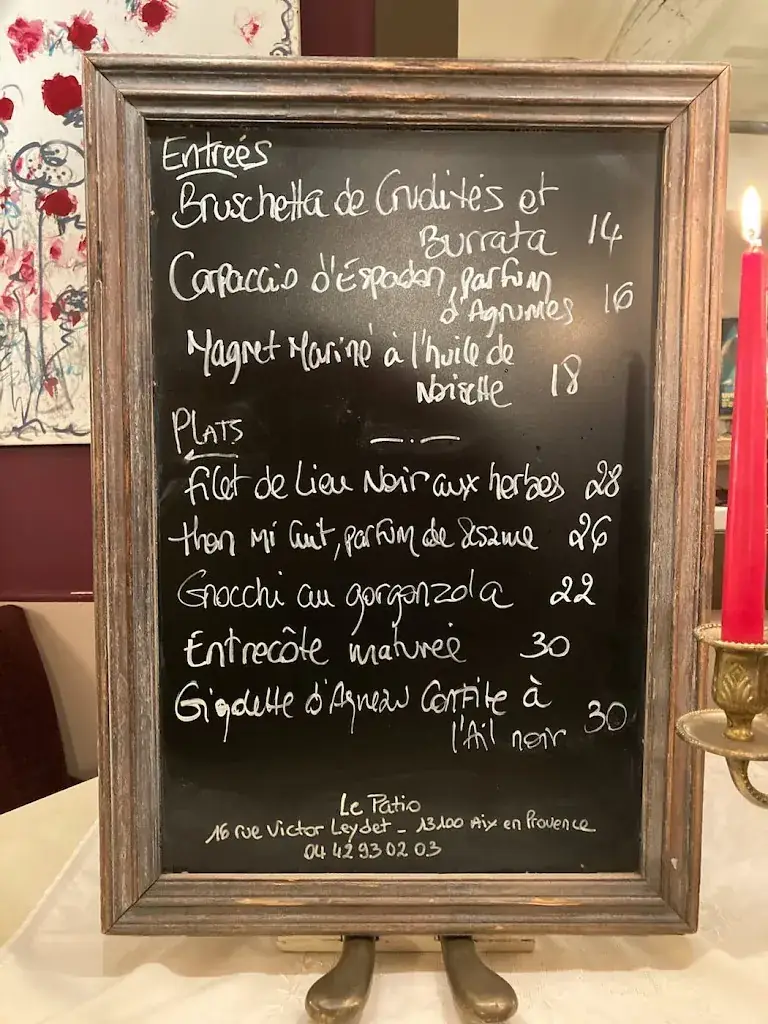 Entreés
Bruschetta de Crudités et
Burrata 14
Carpaccio d'Espadon, parfum
d'Agrumes 16
Magret Mariné à l'huile de
Noisette 18
PLATS
filet de Lieu Noir aux herbes 28
thon Mi Cuit, parfum de Sésame 26
Gnocchi au gorgonzola 22
Entrecôte maturée 30
Gigolette d'Agneau Confite à
l'Ail noir 30
Le Patio
16 rue Victor Leydet - 13100 Aix en Provence
04 42 93 02 03